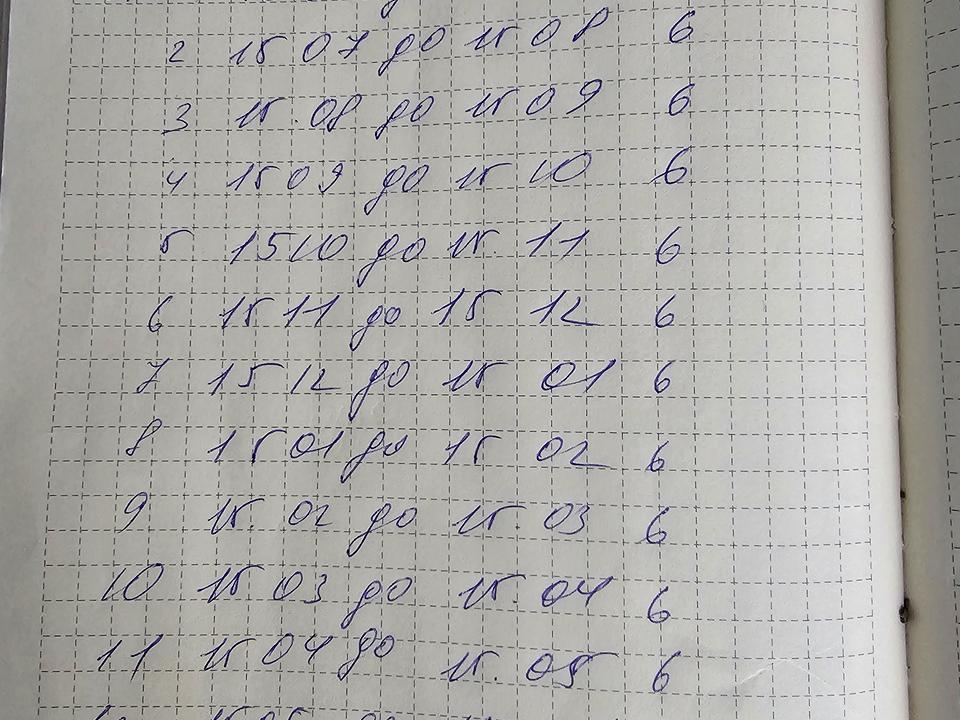 2 15 07 до 15 08 6
3 15.08 до 15 09 6
4 15 09 до 15 10 6
5 15 10 до 15. 11 6
6 15 11 до 15 12 6
7 15 12 до 15 01 6
8 15 01 до 15 02 6
9 15. 02 до 15. 03 6
10 15 03 до 15. 04 6
11 15 04 до 15. 05 6